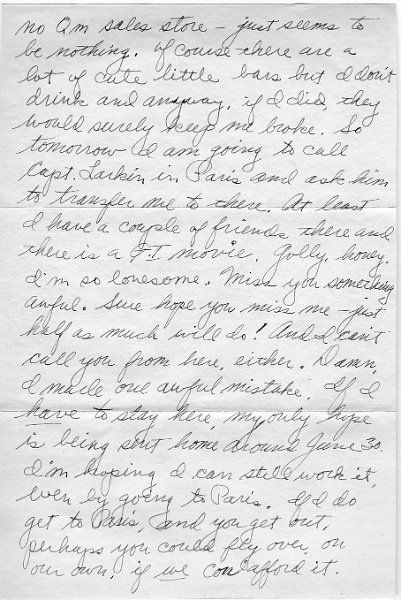 no Qm sales store - just seems to
be nothing. Of course there are a
lot of cute little bars but I don't
drink and anyway, if I did, they
would surely keep me broke. So
tomorrow I am going to call
Capt. Larkin in Paris and ask him
to transfer me to there. At least
I have a couple of friends there and
there is a F.I movie. Golly, honey,
I'm so lonesome. Miss you something
awful. Sure hope you miss me - just
half as much will do! And I can't
call you from here, either. Damn,
I made one awful mistake. If I
have to stay here, my only hope
is being sent home around June 30.
I'm hoping I can still work it,
even by going to Paris. If I do
get to Paris, and you get out,
perhaps you could fly over, on
our own, if we can afford it.